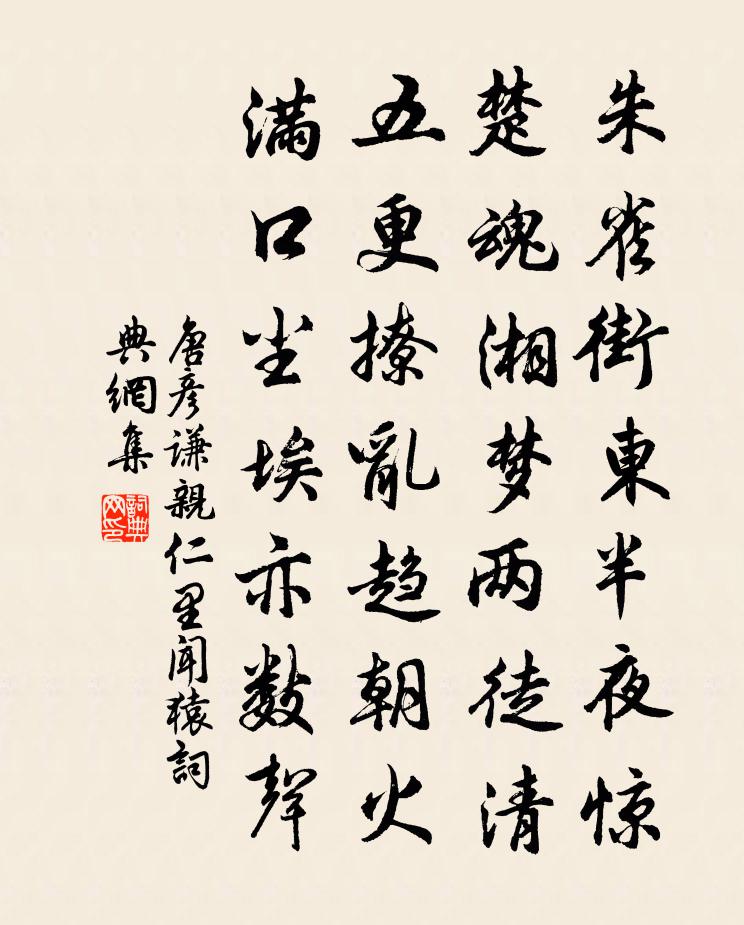 朱雀街東半夜惊
楚魂湘梦两徒清
五更撩亂趋朝火
满口尘埃亦數聲
唐彦谦親仁里闻猿詞
典網集
詞典网印